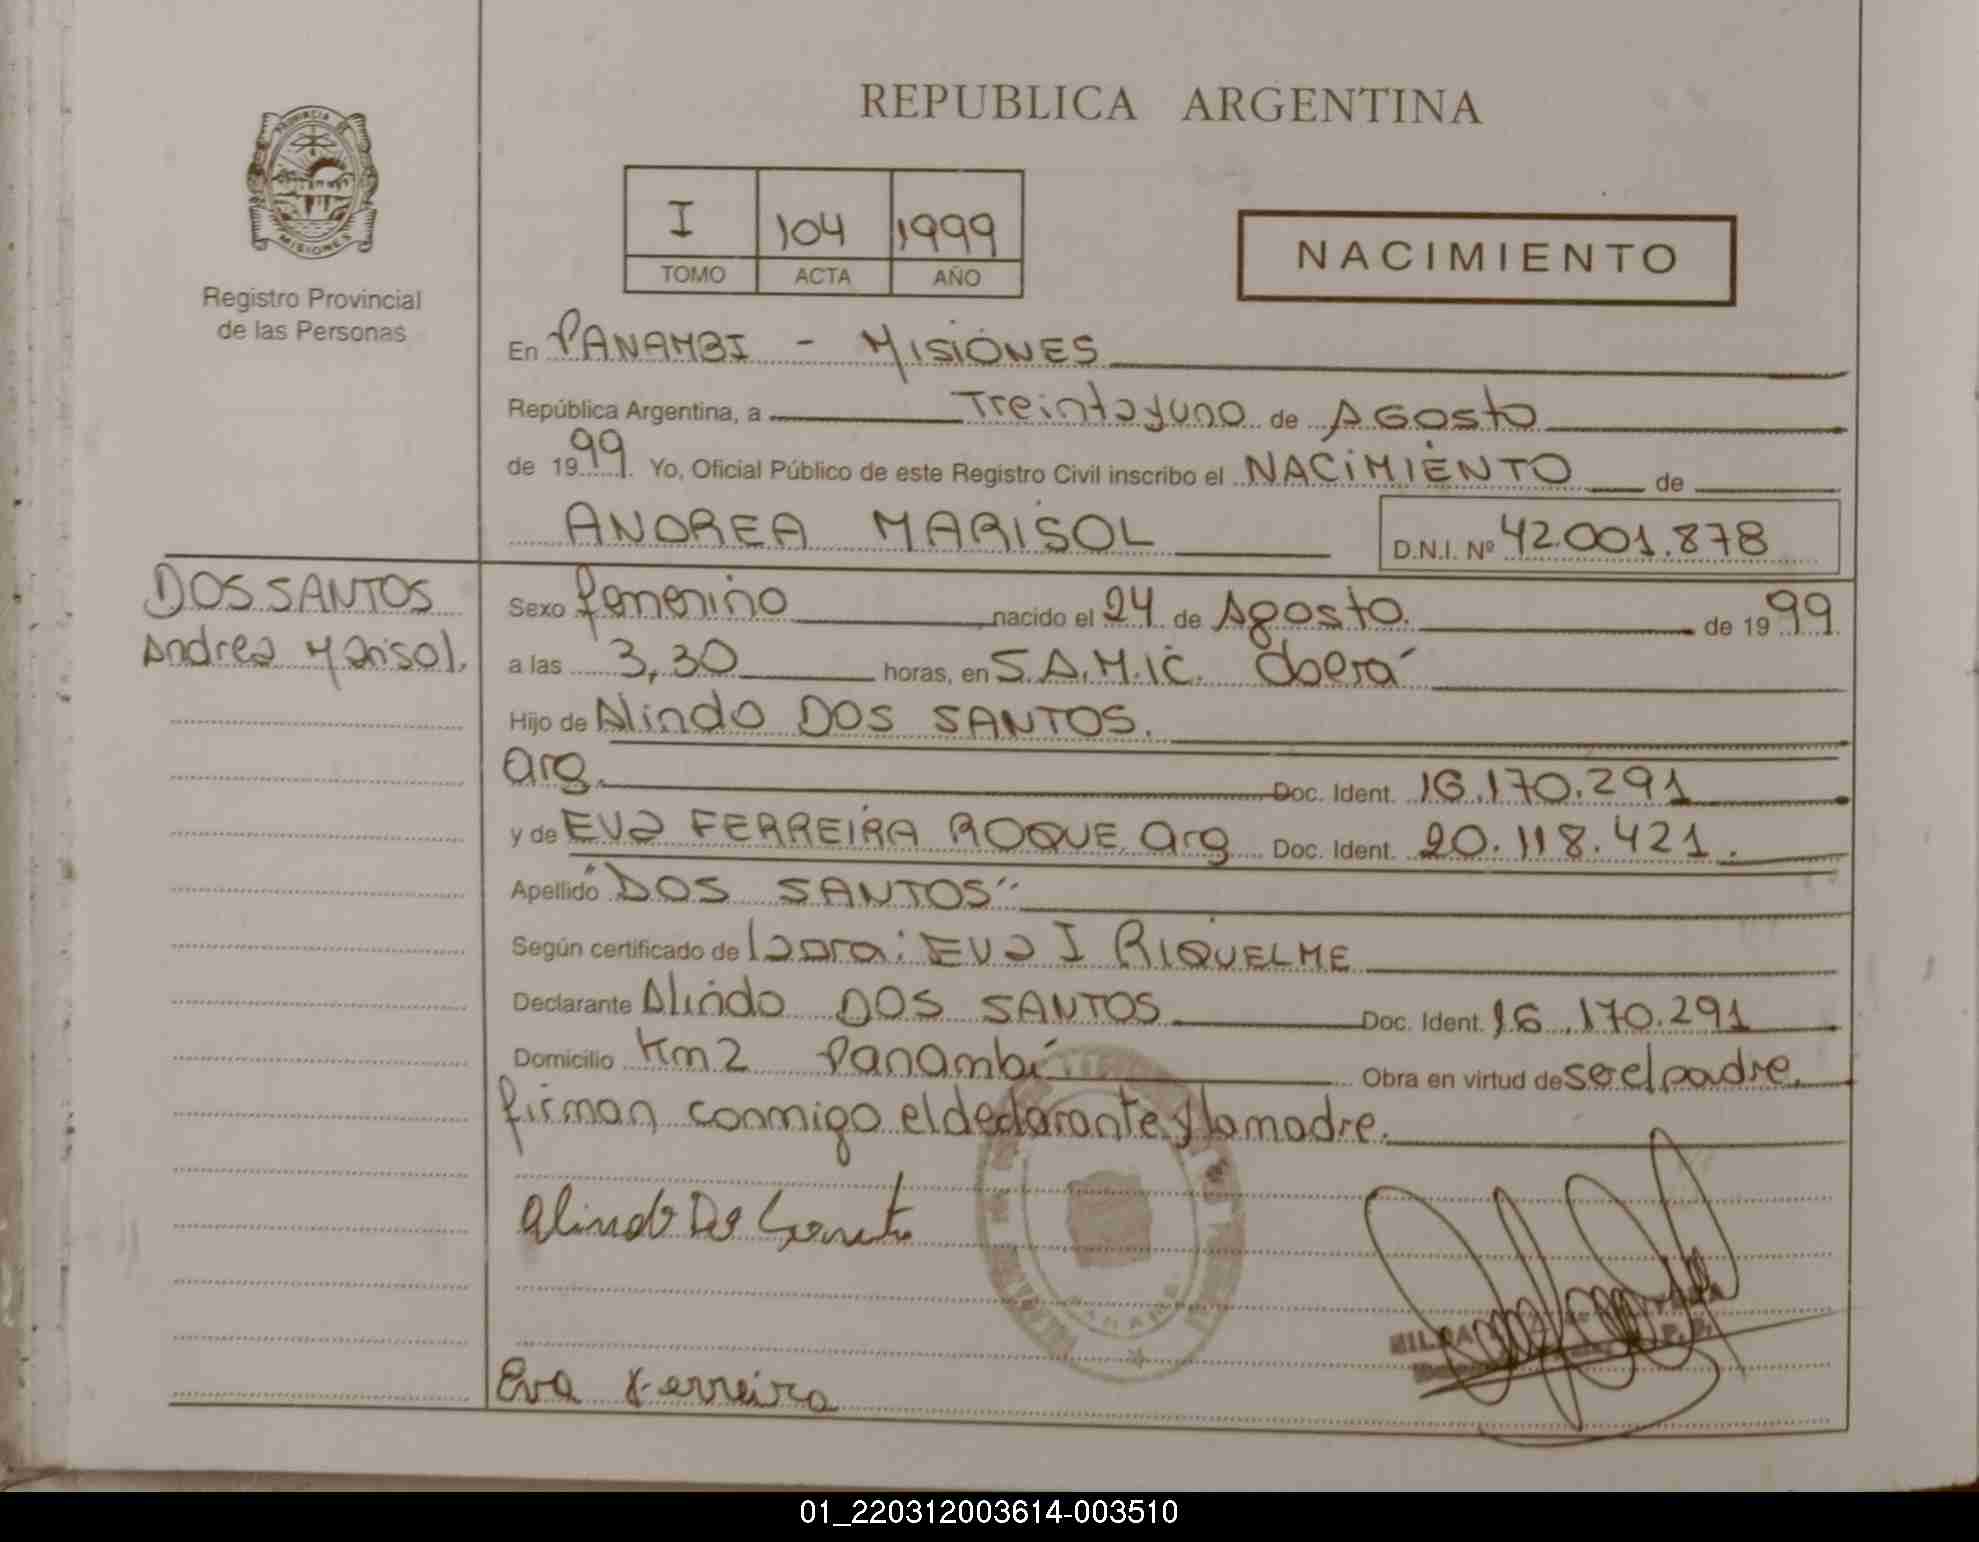 REPUBLICA ARGENTINA
PROVINCIA DE
MISIONES
Registro Provincial
de las Personas
I 104 1999
TOMO ACTA AÑO
NACIMIENTO
En PANAMBI - MISIONES
República Argentina, a Treintayuno de AGosto
de 1999. Yo, Oficial Público de este Registro Civil inscribo el NACIMIENTO de
ANDREA MARISOL D.N.I. Nº 42.001.878
DOS SANTOS
Andrea Marisol.
Sexo femenino nacido el 24 de Agosto. de 1999
a las 3,30 horas, en S.A.M.IC. Oberá
Hijo de Alindo DOS SANTOS.
arg. Doc. Ident. 16.170.291
y de EVA FERREIRA ROQUE arg Doc. Ident. 20.118.421.
Apellido "DOS SANTOS"
Según certificado de EVA I RIQUELME
Declarante Alindo DOS SANTOS Doc. Ident. 16.170.291
Domicilio Km2 Panambí Obra en virtud de ser el padre.
firman conmigo el declarante y la madre.
Alindo Do Santo
PANAMBI
Eva Ferreira
01_220312003614-003510